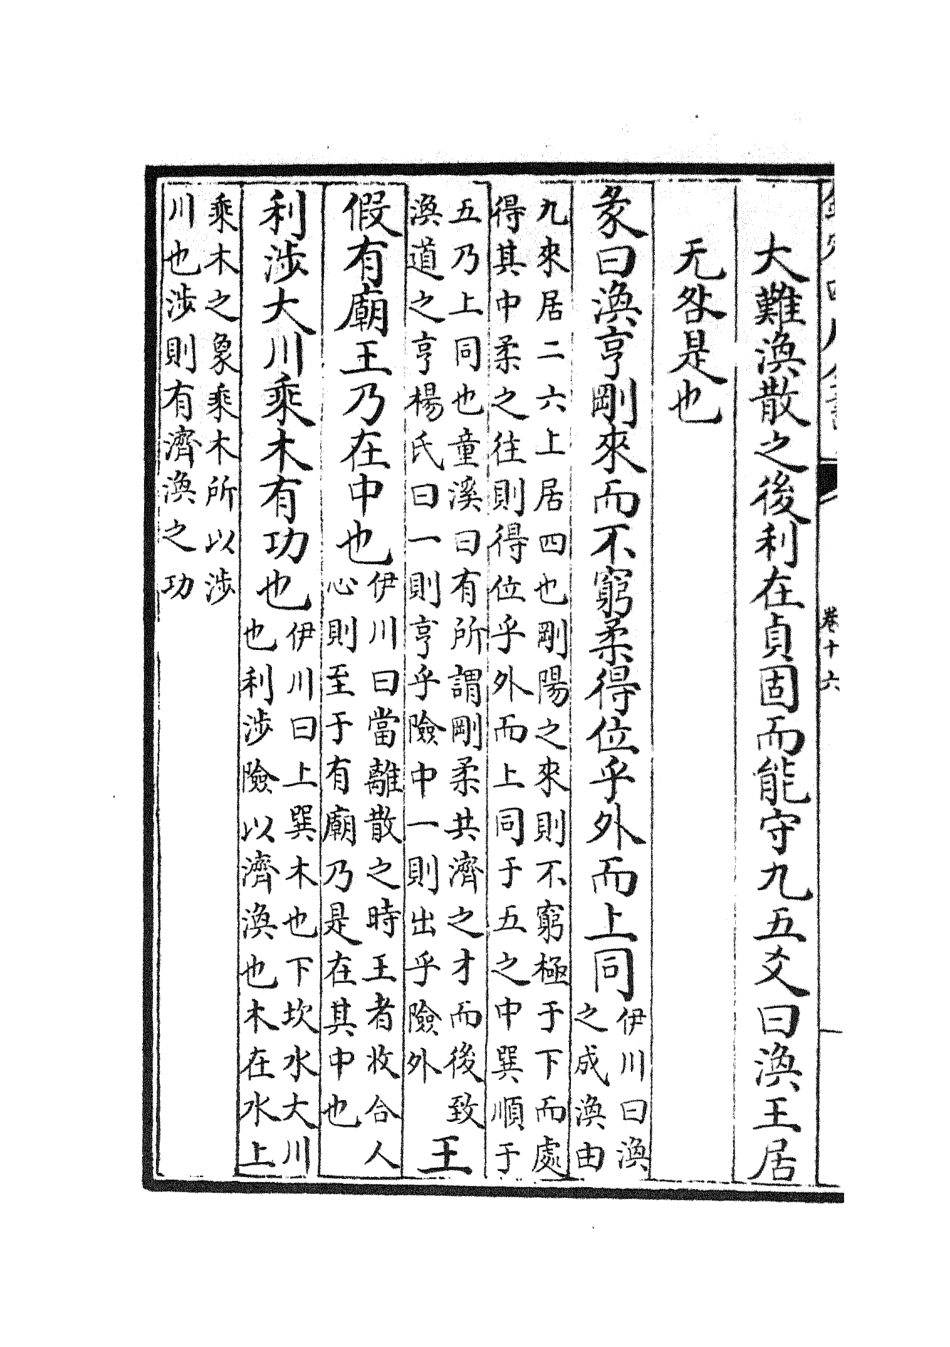 卷十六
大難渙散之後利在貞固而能守九五爻曰渙王居
无咎是也
彖曰渙亨剛來而不窮柔得位乎外而上同
伊川曰渙
之成渙由
九來居二六上居四也剛陽之來則不窮極于下而處
得其中柔之往則得位乎外而上同于五之中巽順于
五乃上同也童溪曰有所謂剛柔共濟之才而後致
渙道之亨楊氏曰一則亨乎險中一則出乎險外
王
假有廟王乃在中也
伊川曰當離散之時王者收合人
心則至于有廟乃是在其中也
利涉大川乘木有功也
伊川曰上巽木也下坎水大川
也利涉險以濟渙也木在水上
乘木之象乘木所以涉
川也涉則有濟渙之功